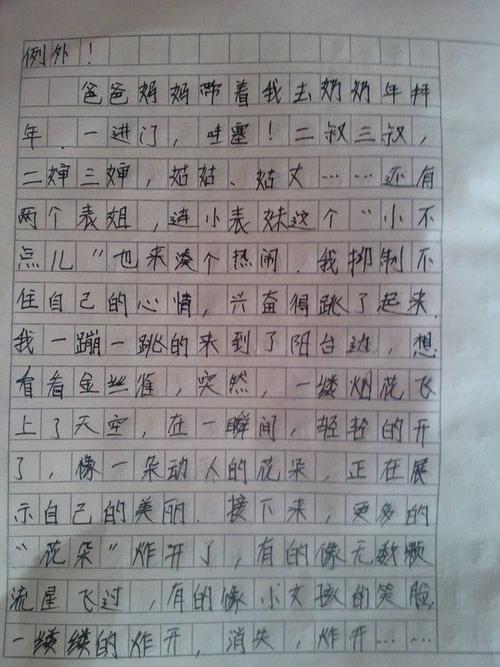 例外！
爸爸妈妈带着我去奶奶年拜
年.一进门，哇塞！二叔三叔，
二婶三婶，姑姑、姑丈……还有
两个表姐，连小表妹这个“小不
点儿”也来凑个热闹.我抑制不
住自己的心情，兴奋得跳了起来.
我一蹦一跳的来到了阳台边，想
看看金丝雀，突然，一缕烟花飞
上了天空，在一瞬间，轻轻的开
了，像一朵动人的花朵，正在展
示自己的美丽.接下来，更多的
“花朵”炸开了，有的像无数颗
流星飞过，有的像小女孩的笑脸，
一缕缕的炸开，消失，炸开……